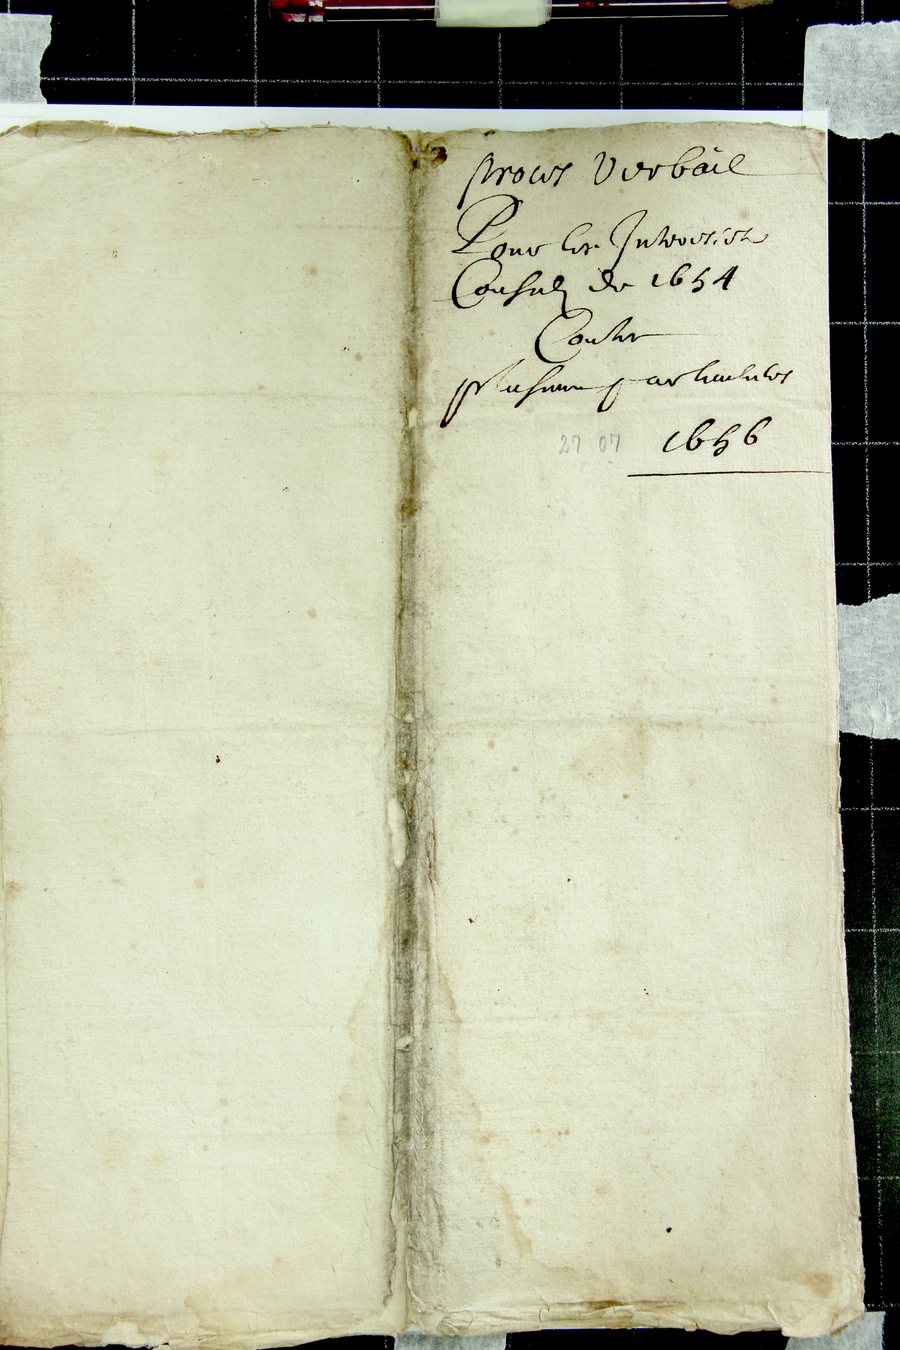 proces Verbail
Pour les Interessés
Consulz de 1654
Contre
plusieurs particuliers
27 07 1656